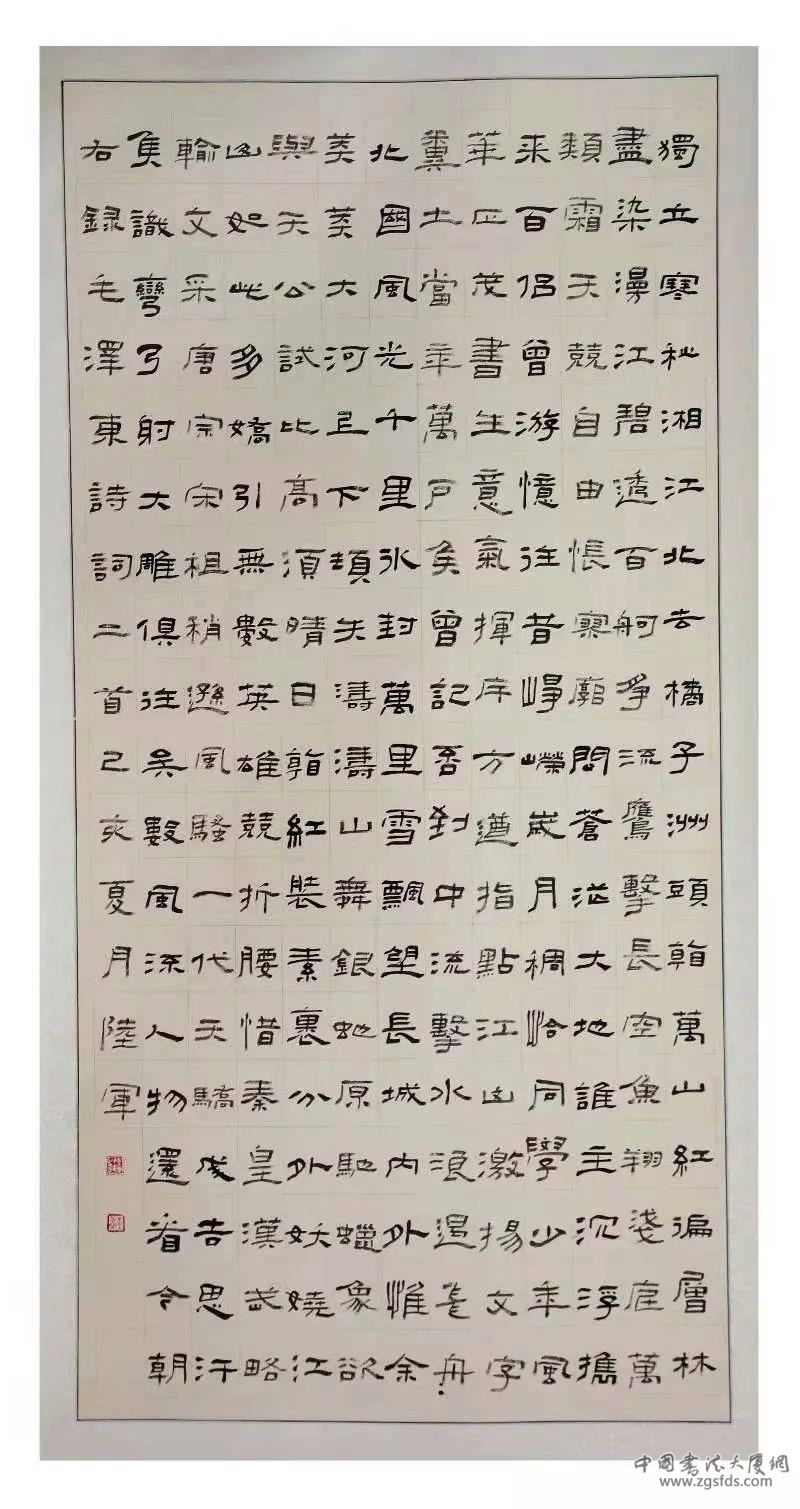 獨立寒秋湘江北去橘子洲頭看萬山紅遍層林
盡染漫江碧透百舸爭流鷹擊長空魚翔淺底萬
類霜天競自由悵寥廓問蒼茫大地誰主沉浮攜
來百侶曾游憶往昔崢嶸歲月稠恰同學少年風
華正茂書生意氣揮斥方遒指點江山激揚文字
糞土當年萬戶侯曾記否到中流擊水浪遏飛舟
北國風光千里冰封萬里雪飄望長城內外惟余
莽莽大河上下頓失濤濤山舞銀蛇原馳蠟象欲
與天公試比高須晴日看紅裝素裹分外妖嬈江
山如此多嬌引無數英雄競折腰惜秦皇漢武略
輸文采唐宗宋祖稍遜風騷一代天驕成吉思汗
隻識彎弓射大雕俱往矣數風流人物還看今朝
右録毛澤東詩詞二首己亥夏月陸軍
中國書法大廈網
www.zgsfds.com